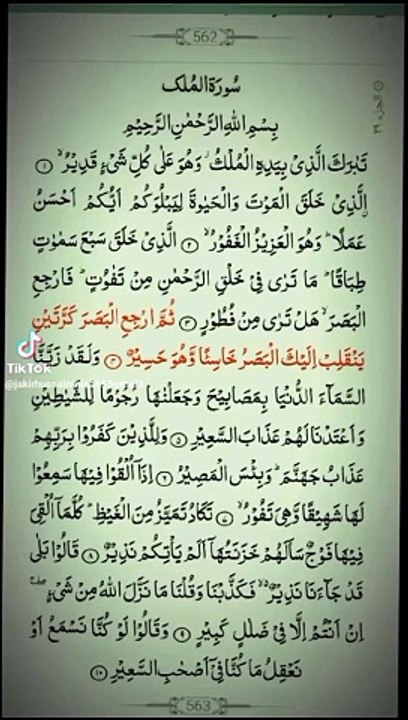 562
الجزء ٢٩
سُورَةُ الْمُلْك
بِسْمِ اللهِ الرَّحْمٰنِ الرَّحِيْمِ
تَبٰرَكَ الَّذِیْ بِیَدِهِ الْمُلْكُ ؗ وَهُوَ عَلٰی كُلِّ شَیْءٍ قَدِیْرُ ۙ ﴿۱﴾
اِ۟لَّذِیْ خَلَقَ الْمَوْتَ وَالْحَیٰوةَ لِیَبْلُوَكُمْ اَیُّكُمْ اَحْسَنُ
عَمَلًا ؕ وَهُوَ الْعَزِیْزُ الْغَفُوْرُ ۙ ﴿۲﴾ الَّذِیْ خَلَقَ سَبْعَ سَمٰوٰتٍ
طِبَاقًا ؕ مَا تَرٰی فِیْ خَلْقِ الرَّحْمٰنِ مِنْ تَفٰوُتٍ ؕ فَارْجِعِ
الْبَصَرَ ۙ هَلْ تَرٰی مِنْ فُطُوْرٍ ﴿۳﴾ ثُمَّ ارْجِعِ الْبَصَرَ كَرَّتَیْنِ
یَنْقَلِبْ اِلَیْكَ الْبَصَرُ خَاسِئًا وَّهُوَ حَسِیْرٌ ﴿۴﴾ وَلَقَدْ زَیَّنَّا
TikTok
السَّمَآءَ الدُّنْیَا بِمَصَابِیْحَ وَجَعَلْنٰهَا رُجُوْمًا لِّلشَّیٰطِیْنِ
وَاَعْتَدْنَا لَهُمْ عَذَابَ السَّعِیْرِ ﴿۵﴾ وَلِلَّذِیْنَ كَفَرُوْا بِرَبِّهِمْ
عَذَابُ جَهَنَّمَ ؕ وَبِئْسَ الْمَصِیْرُ ﴿۶﴾ اِذَاۤ اُلْقُوْا فِیْهَا سَمِعُوْا
لَهَا شَهِیْقًا وَّهِیَ تَفُوْرُ ۙ ﴿۷﴾ تَكَادُ تَمَیَّزُ مِنَ الْغَیْظِ ؕ كُلَّمَاۤ اُلْقِیَ
فِیْهَا فَوْجٌ سَاَلَهُمْ خَزَنَتُهَاۤ اَلَمْ یَاْتِكُمْ نَذِیْرٌ ﴿۸﴾ قَالُوْا بَلٰی
قَدْ جَآءَنَا نَذِیْرٌ ۙ۬ فَكَذَّبْنَا وَقُلْنَا مَا نَزَّلَ اللهُ مِنْ شَیْءٍ ۚۖ
اِنْ اَنْتُمْ اِلَّا فِیْ ضَلٰلٍ كَبِیْرٍ ﴿۹﴾ وَقَالُوْا لَوْ كُنَّا نَسْمَعُ اَوْ
نَعْقِلُ مَا كُنَّا فِیْۤ اَصْحٰبِ السَّعِیْرِ ﴿۱۰﴾
563